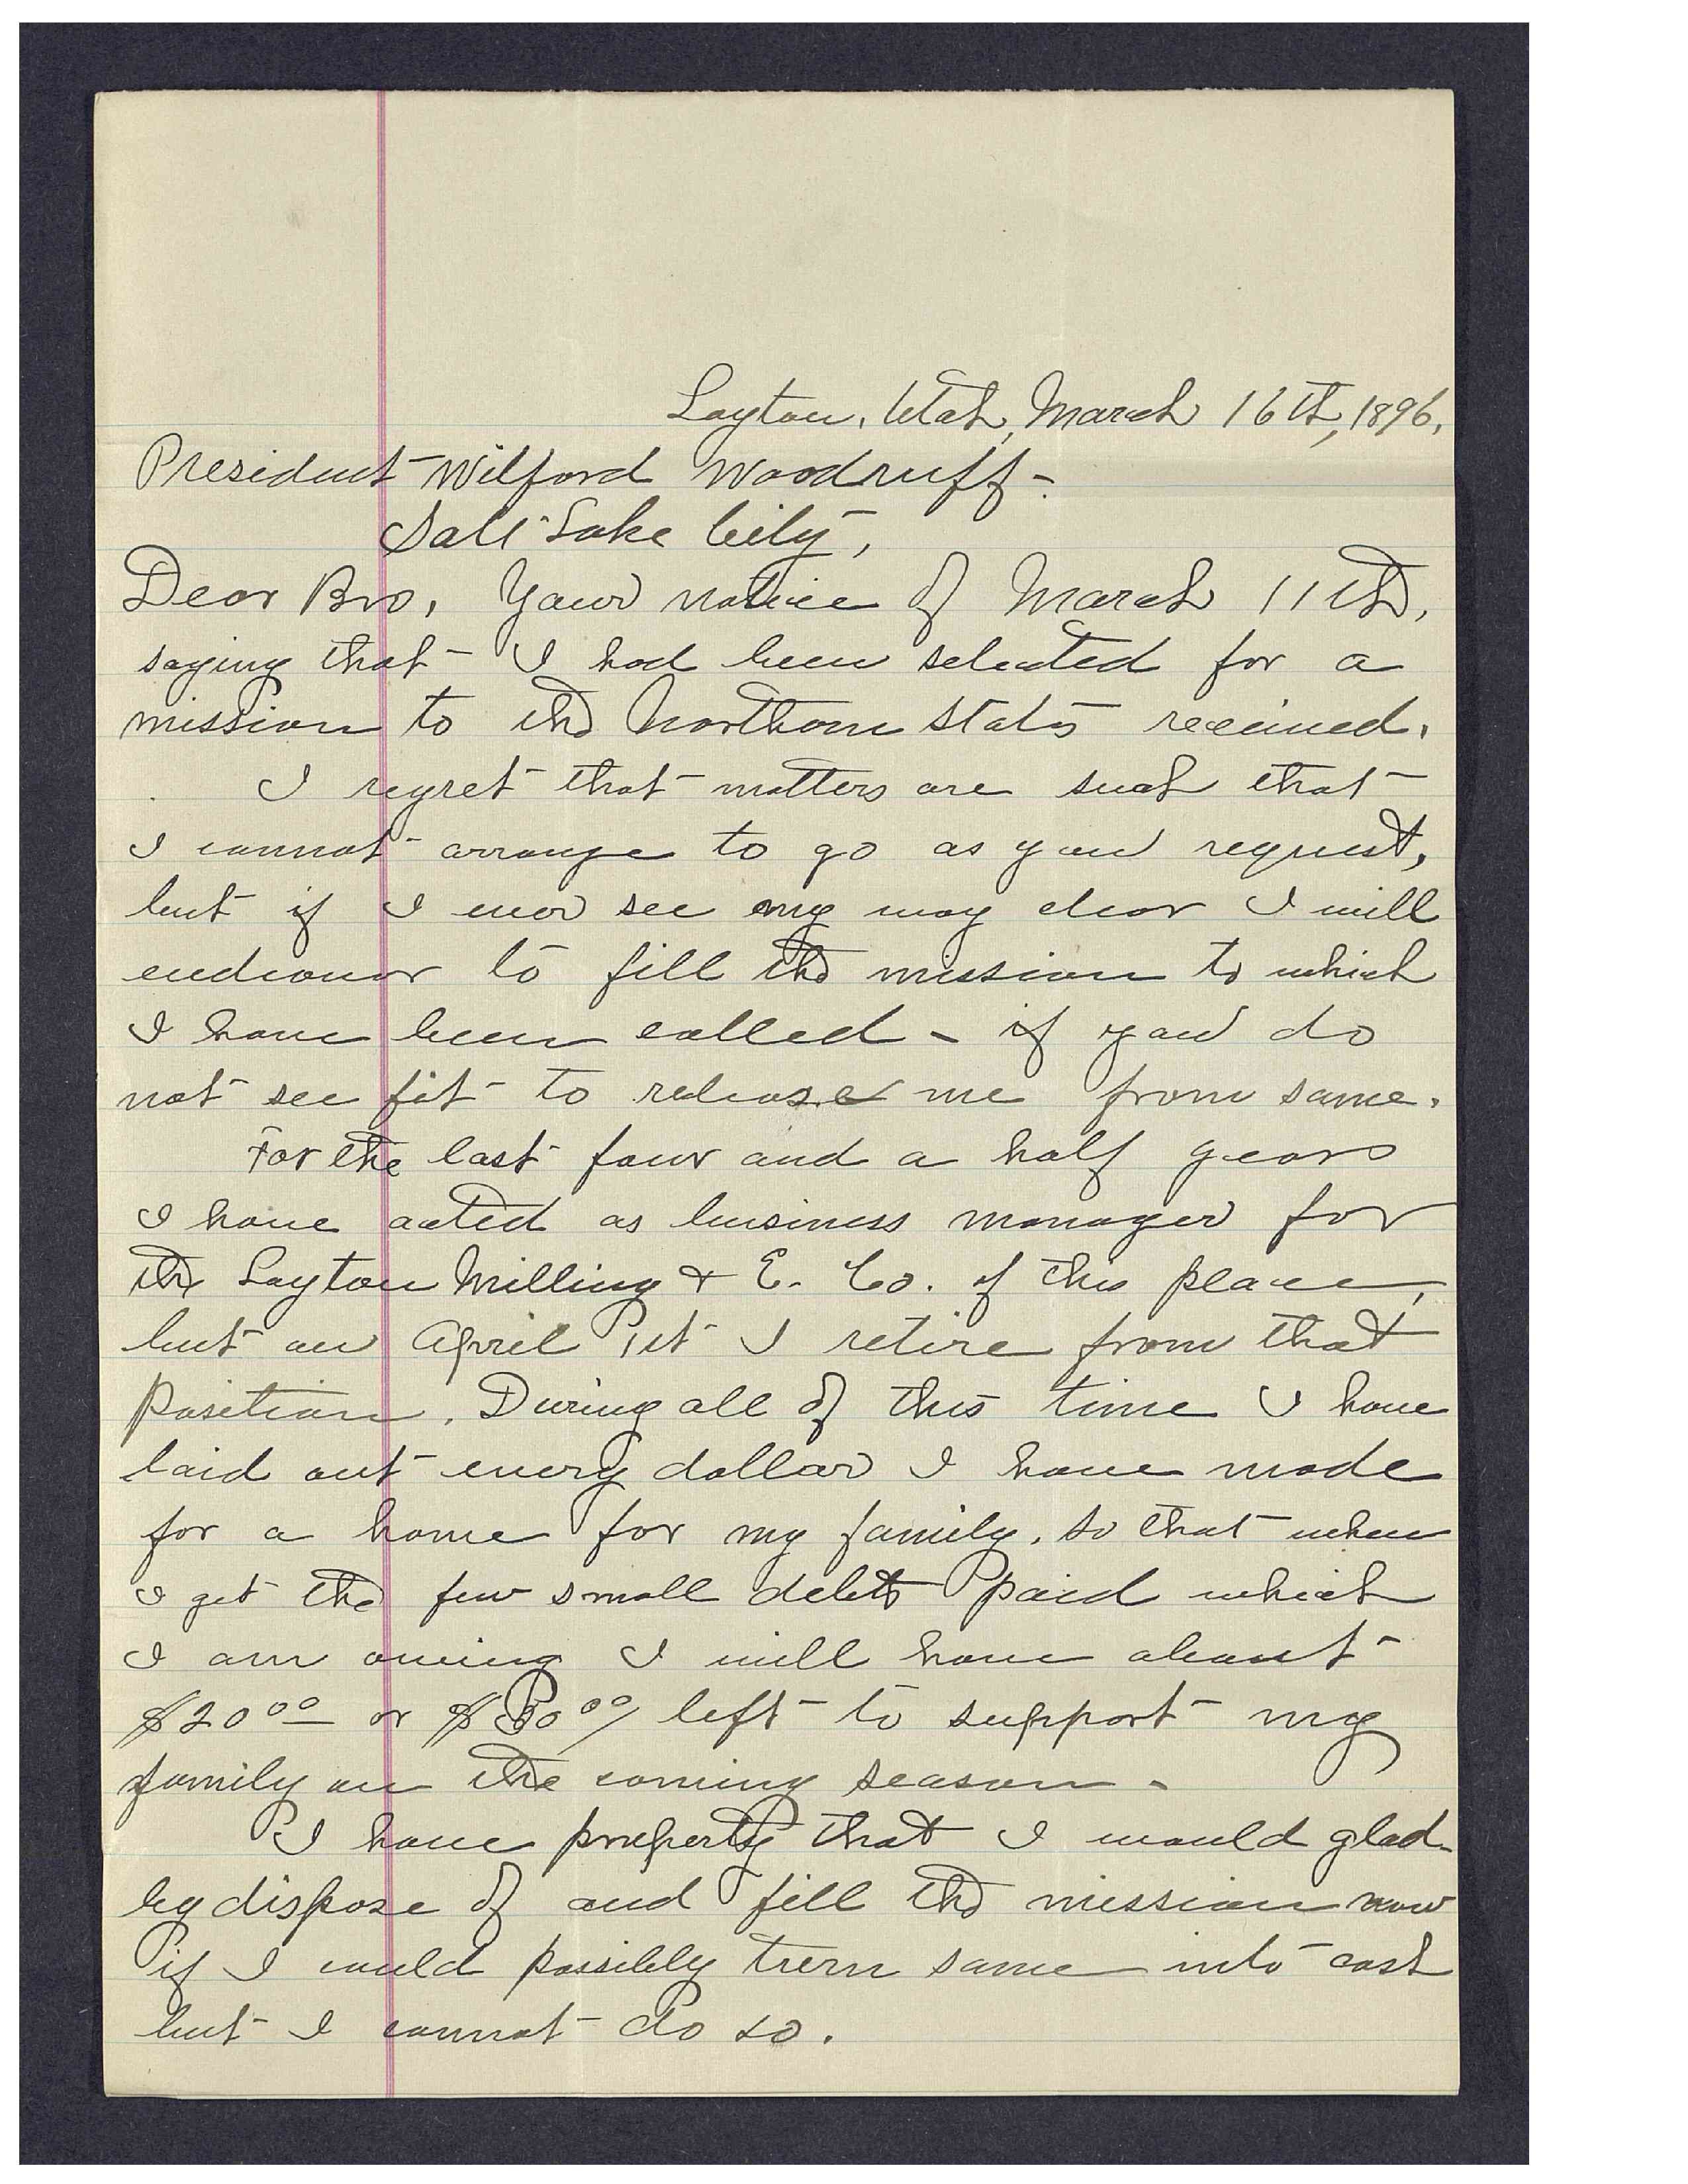 Layton, Utah, March 16th, 1896.
President Wilford Woodruff-
Salt Lake City,
Dear Bro, Your notice of March 11th,
saying that I had been selected for a
mission to the Northern States received.
I regret that matters are such that
I cannot arrange to go as you request,
but if I ever see my way clear I will
endeavor to fill the mission to which
I have been called - if you do
not see fit to release me from same.
For the last four and a half years
I have acted as business manager for
the Layton Milling & E. Co. of this place,
but on April 1st I retire from that
Position. During all of this time I have
laid out every dollar I have made
for a home for my family, so that when
I get the few small debts paid which
I am owing I will have about
$20 00 or $30 00/ left to support my
family on the coming season.
I have property that I would glad-
ly dispose of and fill the mission now
if I could possibly turn same into cash
but I cannot do so.